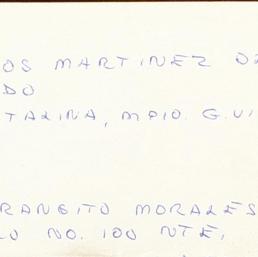 OS MARTINEZ DE
DO
TALINA, MPIO. G. VI
RANSITO MORALES
LO NO. 100 NTE,